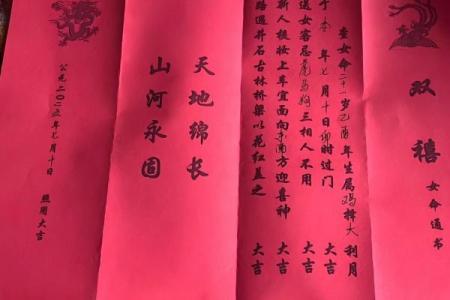 双禧
女命通书
查女命二十一岁乙酉年生属鸡择大利月
于本年七月十日卯时过门大吉
送女客忌虎马狗三相人不用大吉
新人梳妆上车宜面向南方迎喜神大吉
路遇井石古林桥梁以花红盖之大吉
天地绵长
山河永固
公元二〇二五年七月十日
照用大吉